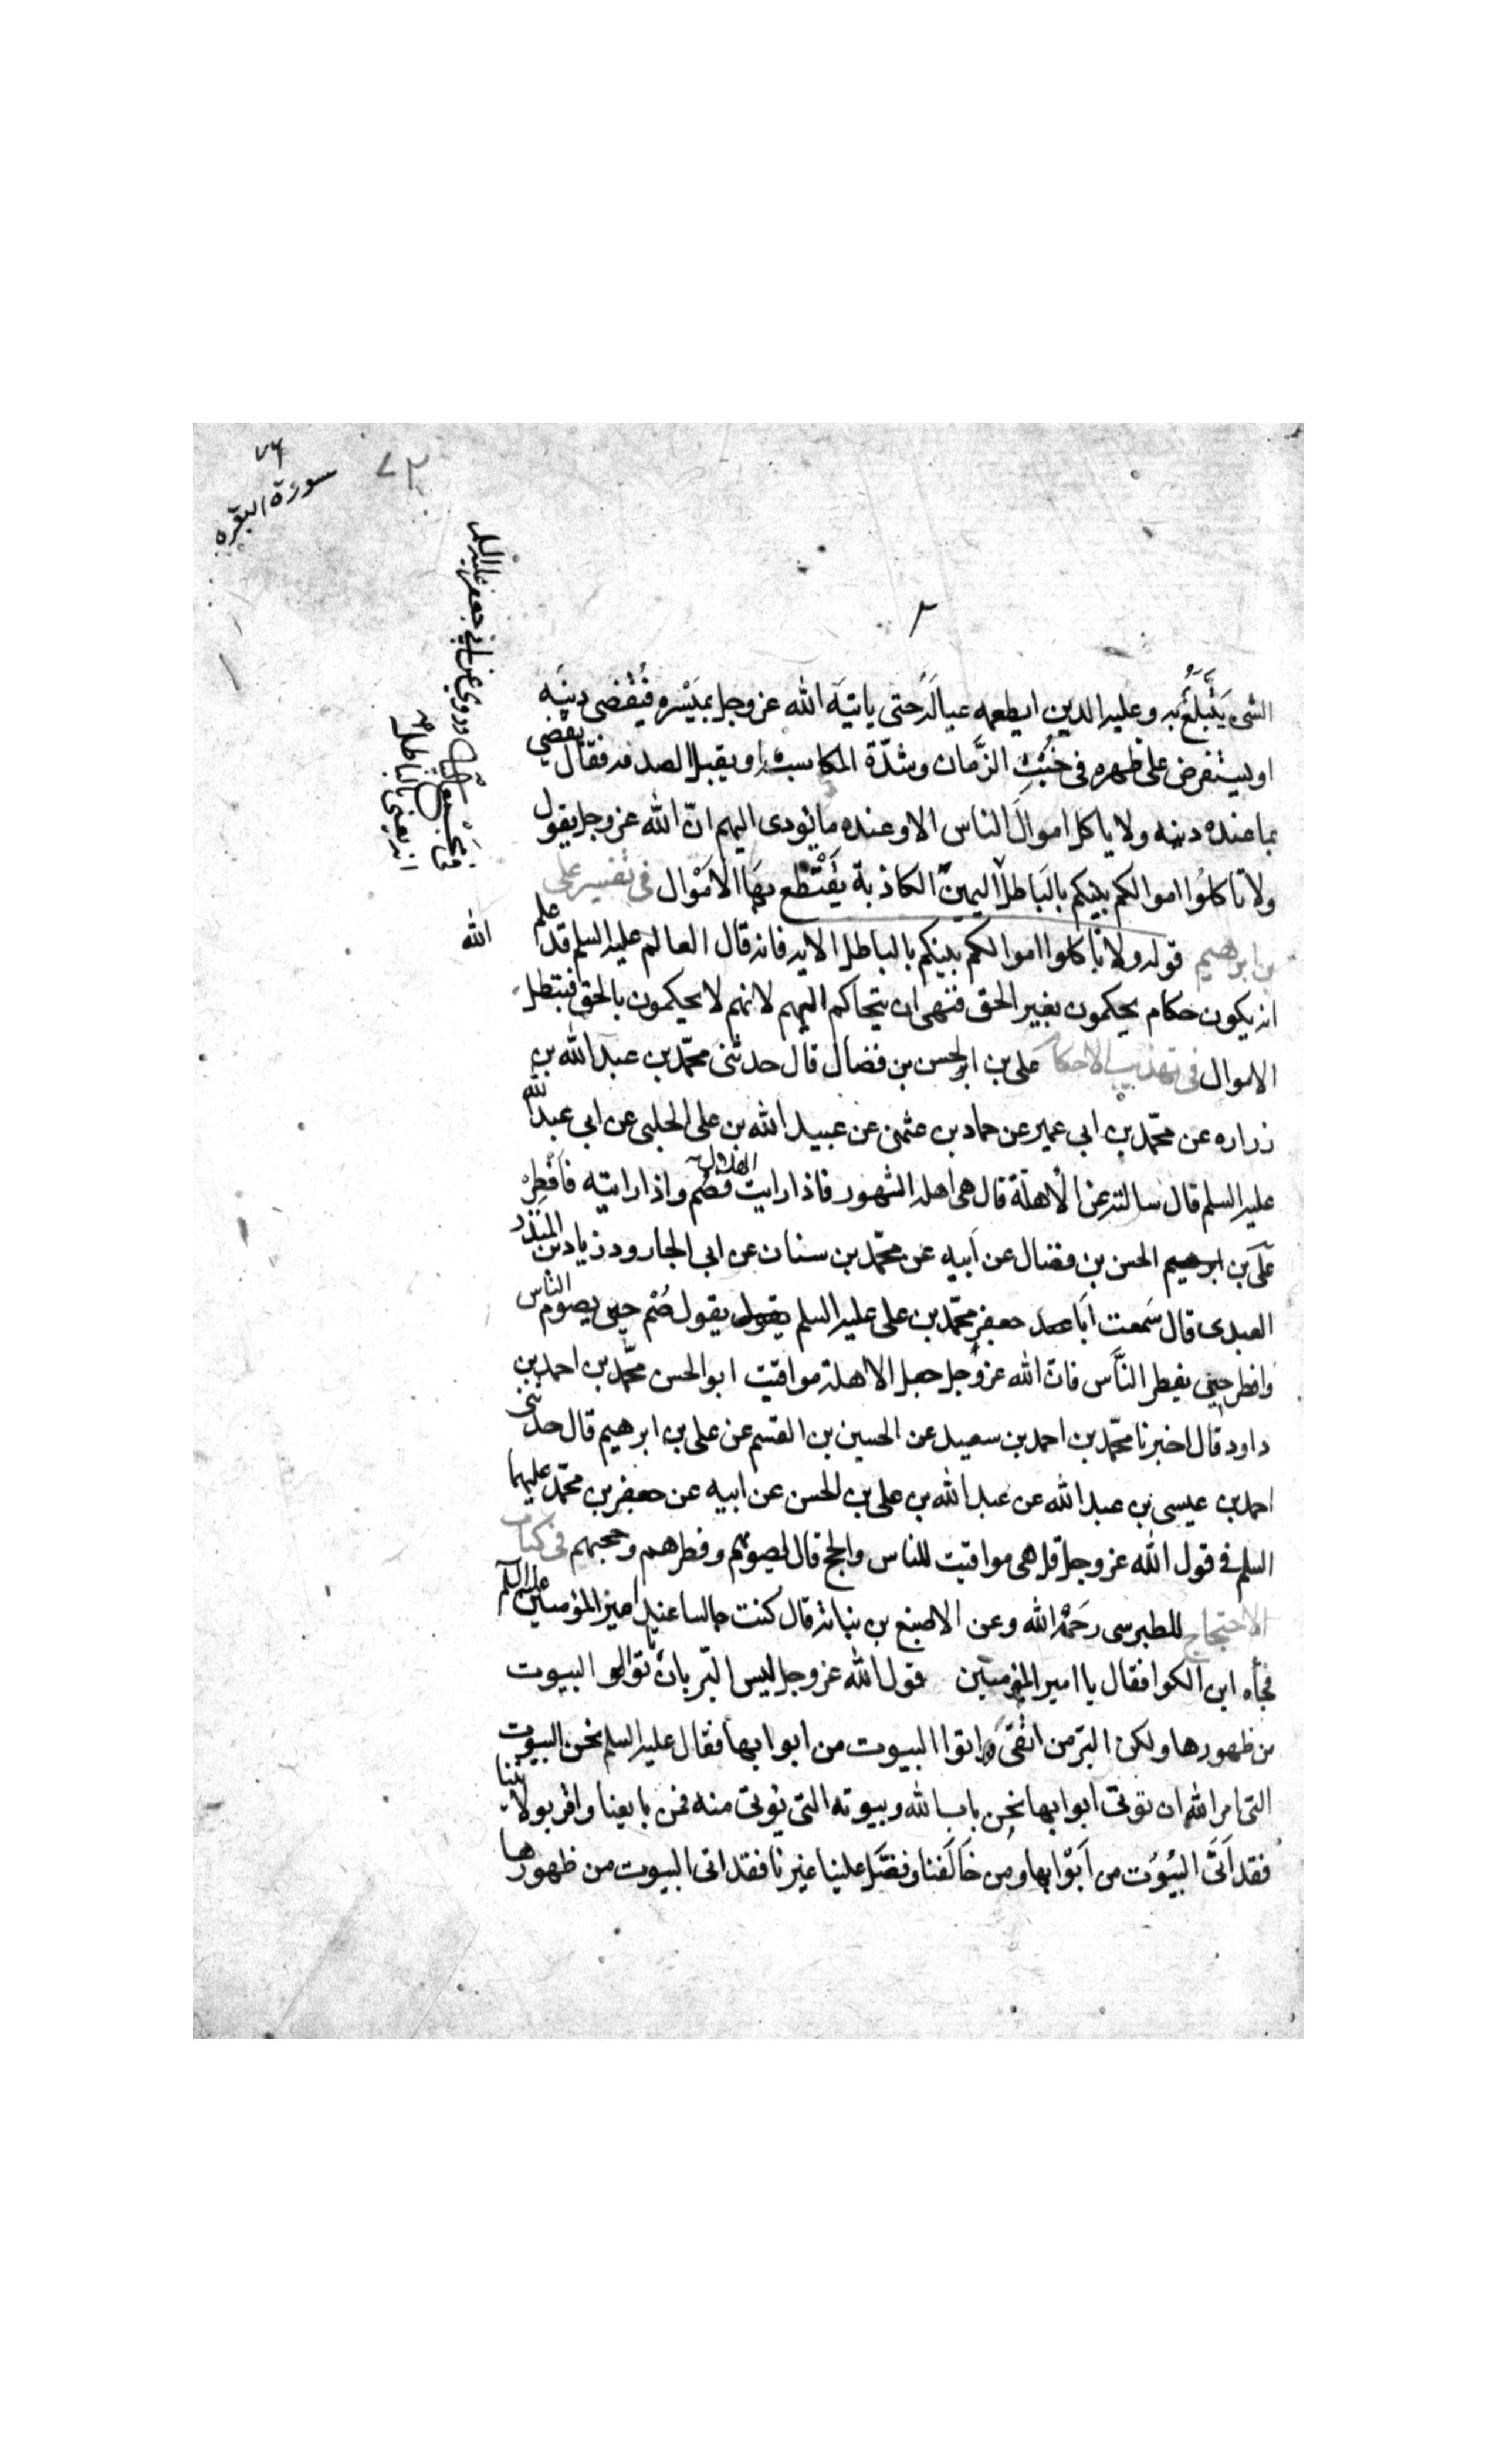 ٧٦
سورة البقره
٧٢
الشئ يَتَبَلَّغُ به وعليه الدين ايطعمه عياله حتى ياتيه الله عز وجل بميسره فيُقضى دينه
او يستقرض على ظهره فى خبث الزمان وشدّة المكاسب او يقبل الصدقه فقال يقضى
بما عنده دينه ولا ياكل اموال الناس الا وعنده ما يؤدى اليهم انّ الله عز وجل يقول
ولا تاكلوا اموالكم بينكم بالباطل اليمين الكاذبة يقتطع بها الاموال فى تفسير على
بن ابرهيم قوله ولا تاكلوا اموالكم بينكم بالباطل الايه فانه قال العالم عليه السلم قد علم الله
انه يكون حكام يحكمون بغير الحق فنهى ان يتحاكم اليهم لانهم لا يحكمون بالحق فيبطل
الاموال فى تهذيب الاحكام على بن الحسن بن فضال قال حدثنى محمّد بن عبد الله بن
زراره عن محمّد بن ابى عمير عن حماد بن عثمن عن عبيد الله بن على الحلبى عن ابى عبد الله
عليه السلم قال سالته عن الأهلّة قال هى اهله الشهور فاذا رايت الهلال فصُم واذا رايته فافطره
على بن ابرهيم الحسن بن فضال عن ابيه عن محمّد بن سنان عن ابى الجارود زياد بن المنذر
العبدى قال سمعت ابا جعفر محمّد بن على عليه السلم يقول يقول صُم حين يصوم الناس
وافطر حين يفطر النّاس فان الله عز وجل جعل الاهلة مواقيت ابو الحسن محمّد بن احمد بن
داود قال اخبرنا محمّد بن احمد بن سعيد عن الحسين بن القسم عن على بن ابرهيم قال حدثنى
احمد بن عيسى بن عبد الله عن عبد الله بن على بن الحسن عن ابيه عن جعفر بن محمّد عليهما
السلم فى قول الله عز وجل قل هى مواقيت للناس والحج قال لصومهم وفطرهم وحجهم فى كتاب
الاحتجاج للطبرسى رحمه الله وعن الاصبغ بن نباته قال كنت جالسا عند امير المؤمنين عليه السلم
فجأه ابن الكوا فقال يا امير المؤمنين قول الله عز وجل ليس البّر بان تاتوا البيوت
من ظهورها ولكن البر من اتقى واتوا البيوت من ابوابها فقال عليه السلم نحن البيوت
التى امر الله ان توتى ابوابها نحن باب الله وبيوته التى يوتى منه فمن بايعنا واقر بولايتنا
فقد اَتَى البُيُوت من ابوابها ومن خالفنا وفضّل علينا غيرنا فقد اتى البيوت من ظهورها
وروى عن ابى جعفر عليه السلم
انه يعنى بالباطل